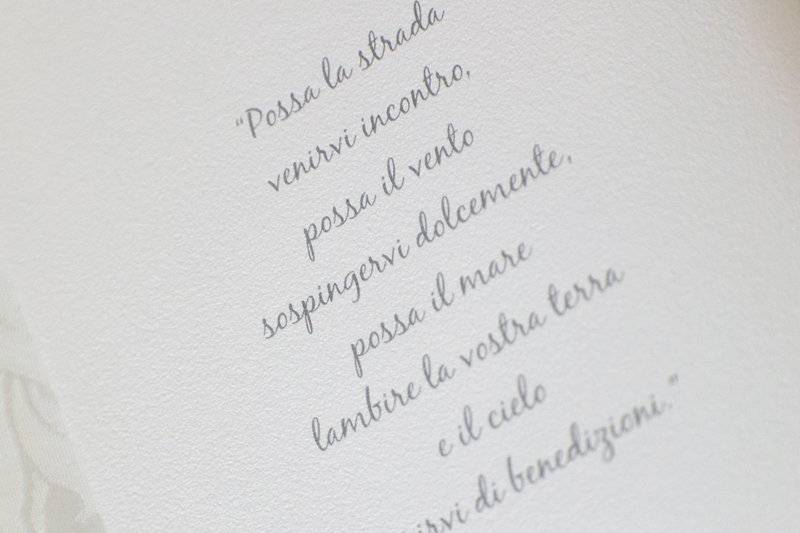 “Possa la strada
venirvi incontro,
possa il vento
sospingervi dolcemente,
possa il mare
lambire la vostra terra
e il cielo
di benedizioni.”